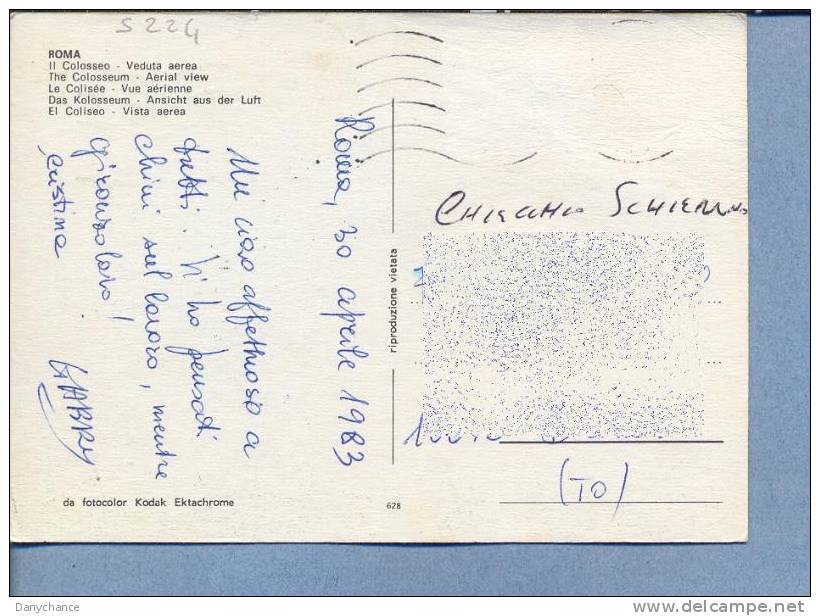 S 224
ROMA
Il Colosseo - Veduta aerea
The Colosseum - Aerial view
Le Colisée - Vue aérienne
Das Kolosseum - Ansicht aus der Luft
El Coliseo - Vista aerea
Roma, 30 aprile 1983
Un ciao affettuoso a
tutti. Vi ho pensati
chini sul lavoro, mentre
gironzolavo!
Cristina
GABRY
riproduzione vietata
(TO)
da fotocolor Kodak Ektachrome
628
Danychance
delcampe.net